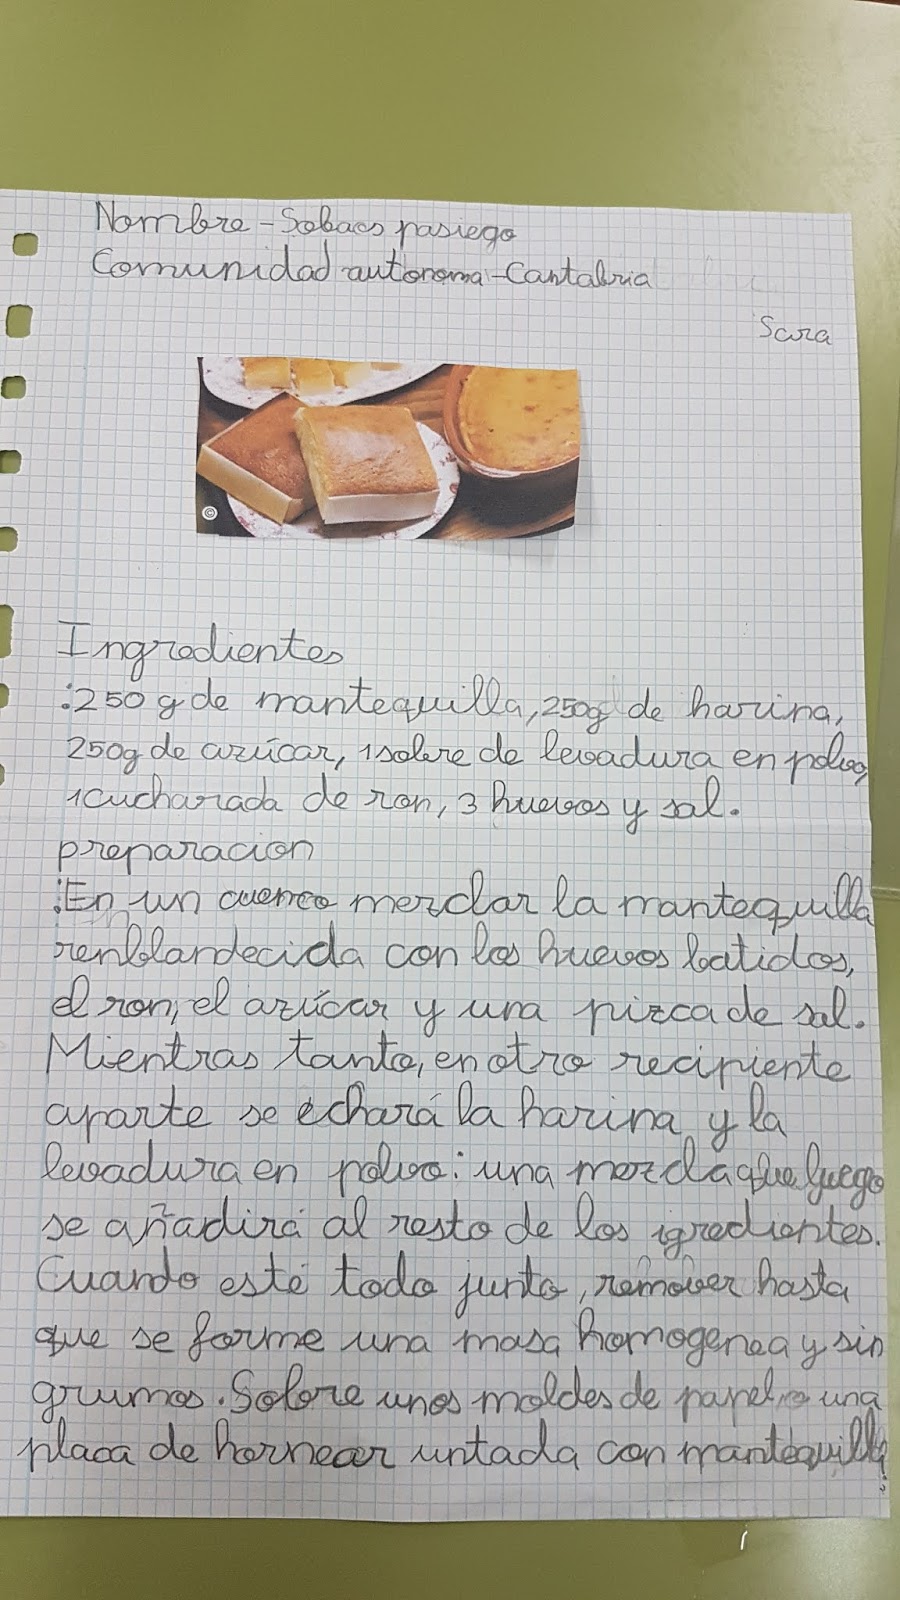 Nombre - Sobaos pasiego
Comunidad autonoma - Cantabria
Sara
©
Ingredientes
:250 g de mantequilla, 250g de harina,
250g de azúcar, 1 sobre de levadura en polvo,
1 cucharada de ron, 3 huevos y sal.
preparacion
:En un cuenco mezclar la mantequilla
renblandecida con los huevos batidos,
el ron, el azúcar y una pizca de sal.
Mientras tanto, en otro recipiente
aparte se echará la harina y la
levadura en polvo: una mezcla que luego
se añadirá al resto de los igredientes.
Cuando esté todo junto, remover hasta
que se forme una masa homogenea y sin
grumos. Sobre unos moldes de papel o una
placa de hornear untada con mantequilla